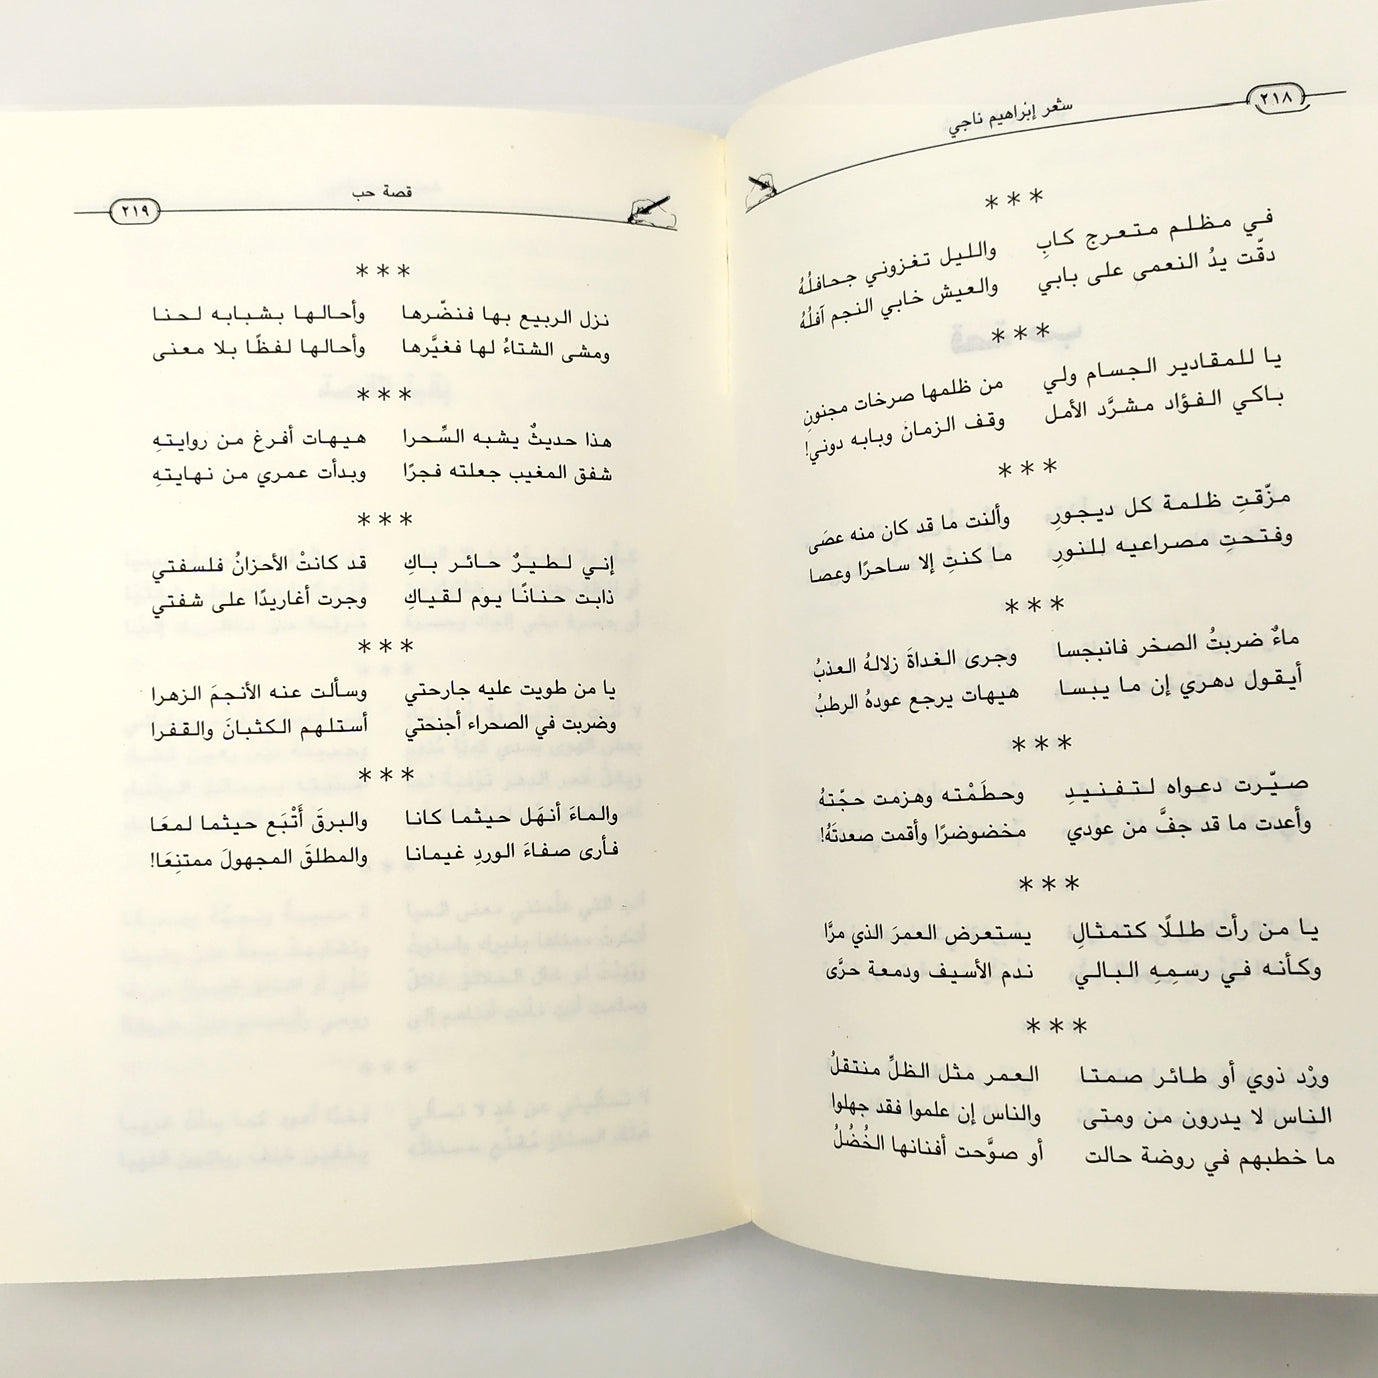 ٢١٨
شعر إبراهيم ناجي
***
في مظلم متعرج كابِ والليل تغزوني جحافلُهُ
دقّت يدُ النعمى على بابي والعيش خابي النجم آفلُهُ
***
يا للمقادير الجسام ولي من ظلمها صرخات مجنونِ
باكي الفؤاد مشرَّد الأمل وقف الزمانُ وبابه دوني!
***
مزّقتِ ظلمة كل ديجورِ وألنت ما قد كان منه عصَى
وفتحتِ مصراعيه للنورِ ما كنتِ إلا ساحرًا وعصا
***
ماءٌ ضربتُ الصخر فانبجسا وجرى الغداةَ زلالهُ العذبُ
أيقول دهري إن ما يبسا هيهات يرجع عودهُ الرطبُ
***
صيّرت دعواه لتفنيدِ وحطَمْته وهزمت حجّتهُ
وأعدت ما قد جفَّ من عودي مخضوضرًا وأقمت صعدتَهُ!
***
يا من رأت طللًا كتمثالِ يستعرض العمرَ الذي مرَّا
وكأنه في رسمِهِ البالي ندم الأسيف ودمعة حرَّى
***
ورْد ذوي أو طائر صمتا العمر مثل الظلِّ منتقلُ
الناس لا يدرون من ومتى والناس إن علموا فقد جهلوا
ما خطبهم في روضة حالت أو صوَّحت أفنانها الخُضُلُ
قصة حب
٢١٩
***
نزل الربيع بها فنضّرها وأحالها بشبابه لحنا
ومشى الشتاءُ لها فغيَّرها وأحالها لفظًا بلا معنى
***
هذا حديثٌ يشبه السِّحرا هيهات أفرغ من روايتهِ
شفق المغيب جعلته فجرًا وبدأت عمري من نهايتهِ
***
إني لطيرٌ حائر باكِ قد كانتْ الأحزانُ فلسفتي
ذابت حنانًا يوم لقياكِ وجرت أغاريدًا على شفتي
***
يا من طويت عليه جارحتي وسألت عنه الأنجمَ الزهرا
وضربت في الصحراء أجنحتي أستلهم الكثبانَ والقفرا
***
والماءَ أنهَل حيثما كانا والبرقَ أَتْبَع حيثما لمعَا
فأرى صفاءَ الوردِ غيمانا والمطلقَ المجهولَ ممتنِعَا!